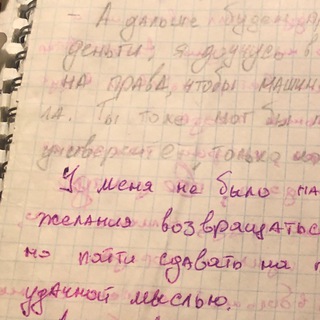 - А дальше будем
деньги, я доучусь в
на права, чтобы машин
ла. Ты тоже мог бы
университет, только
У меня не было
желания возвращатьс
но пойти сдавать на п
удачной мыслью.